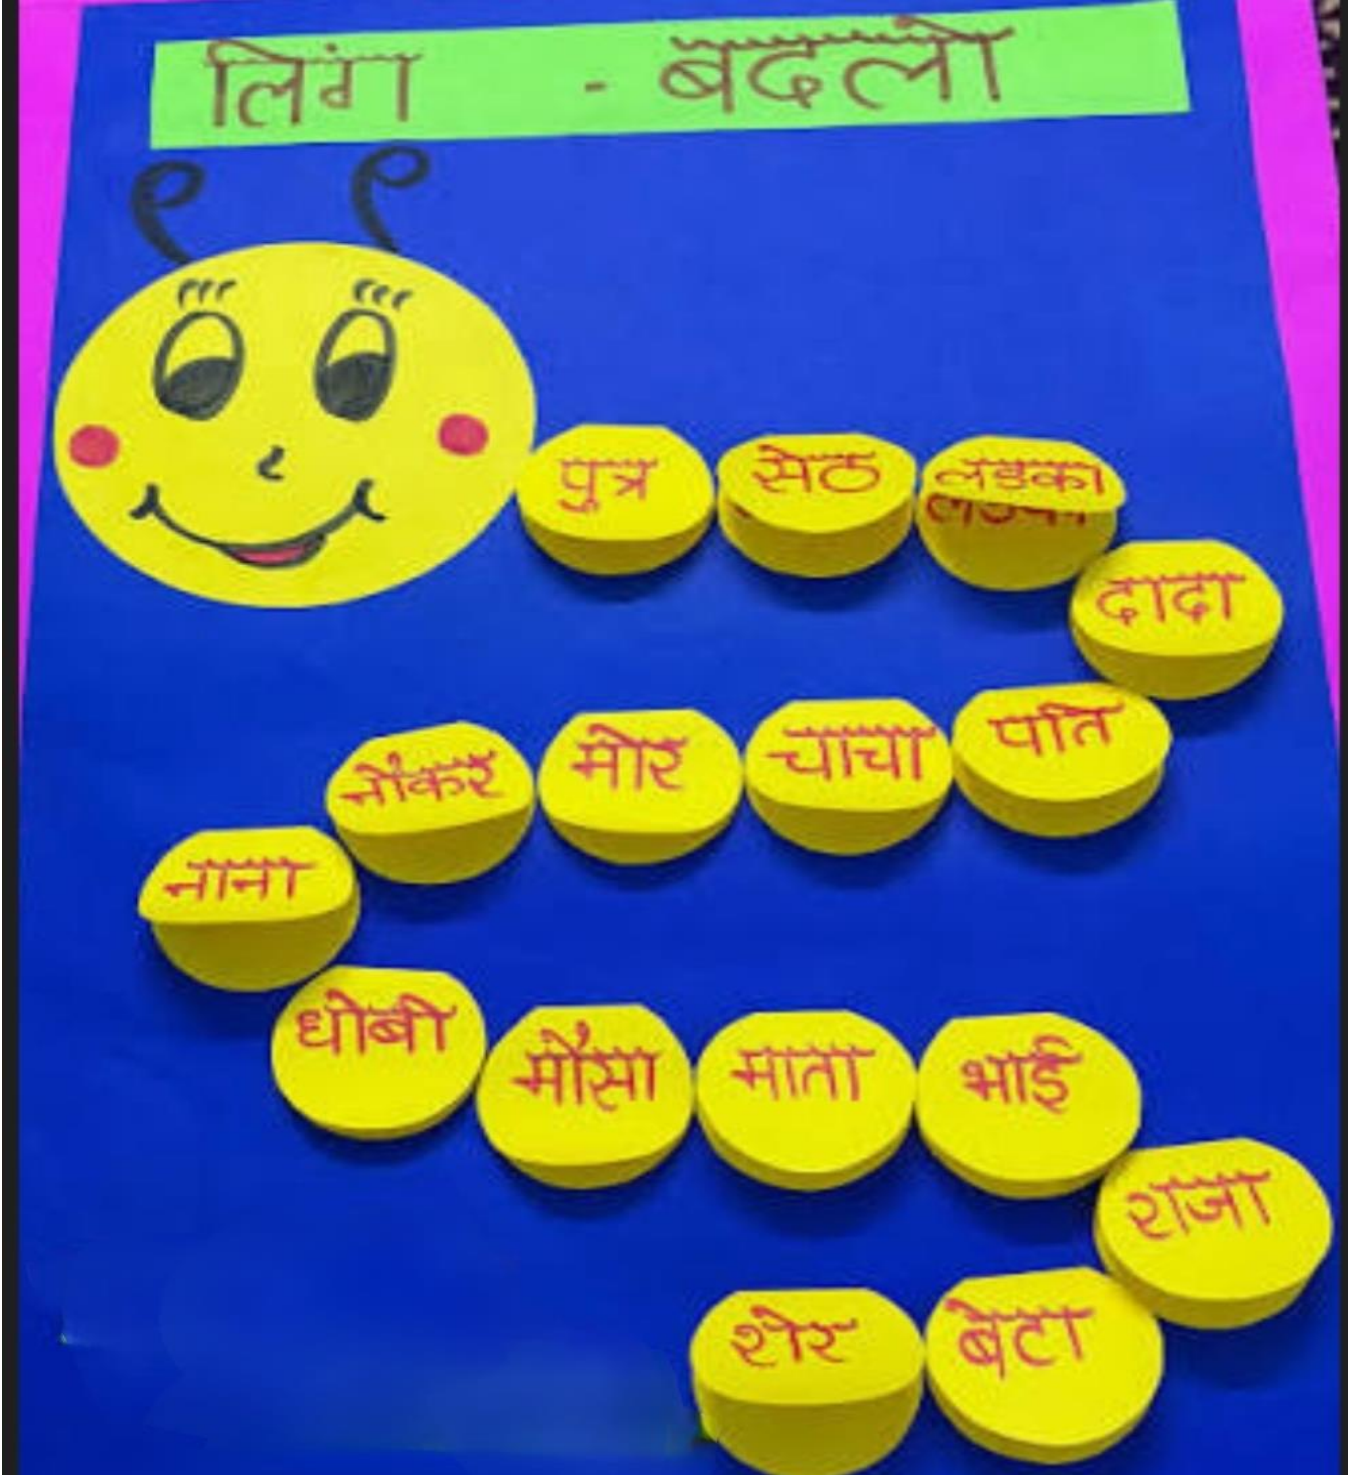 लिंग - बदलो
पुत्र
सेठ
लडका
दादा
पति
चाचा
मोर
नौकर
नाना
धोबी
मौसा
माता
भाई
राजा
बेटा
शेर